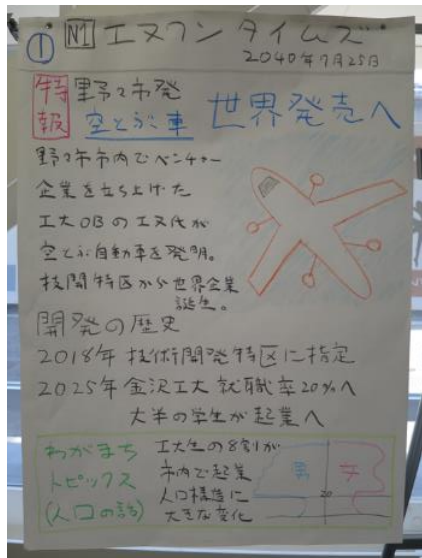 ①
N1 エヌワンタイムズ
2040年7月25日
特報
野々市発
空とぶ車 世界発売へ
野々市市内でベンチャー
企業を立ち上げた
工大OBのエヌ氏が
空とぶ自動車を発明。
技開特区から世界企業
誕生。
開発の歴史
2018年 技術開発特区に指定
2025年 金沢工大 就職率20%へ
大半の学生が起業へ
わがまち
トピックス
(人口の話)
工大生の8割が
市内で起業
人口構造に
大きな変化
男
女
20